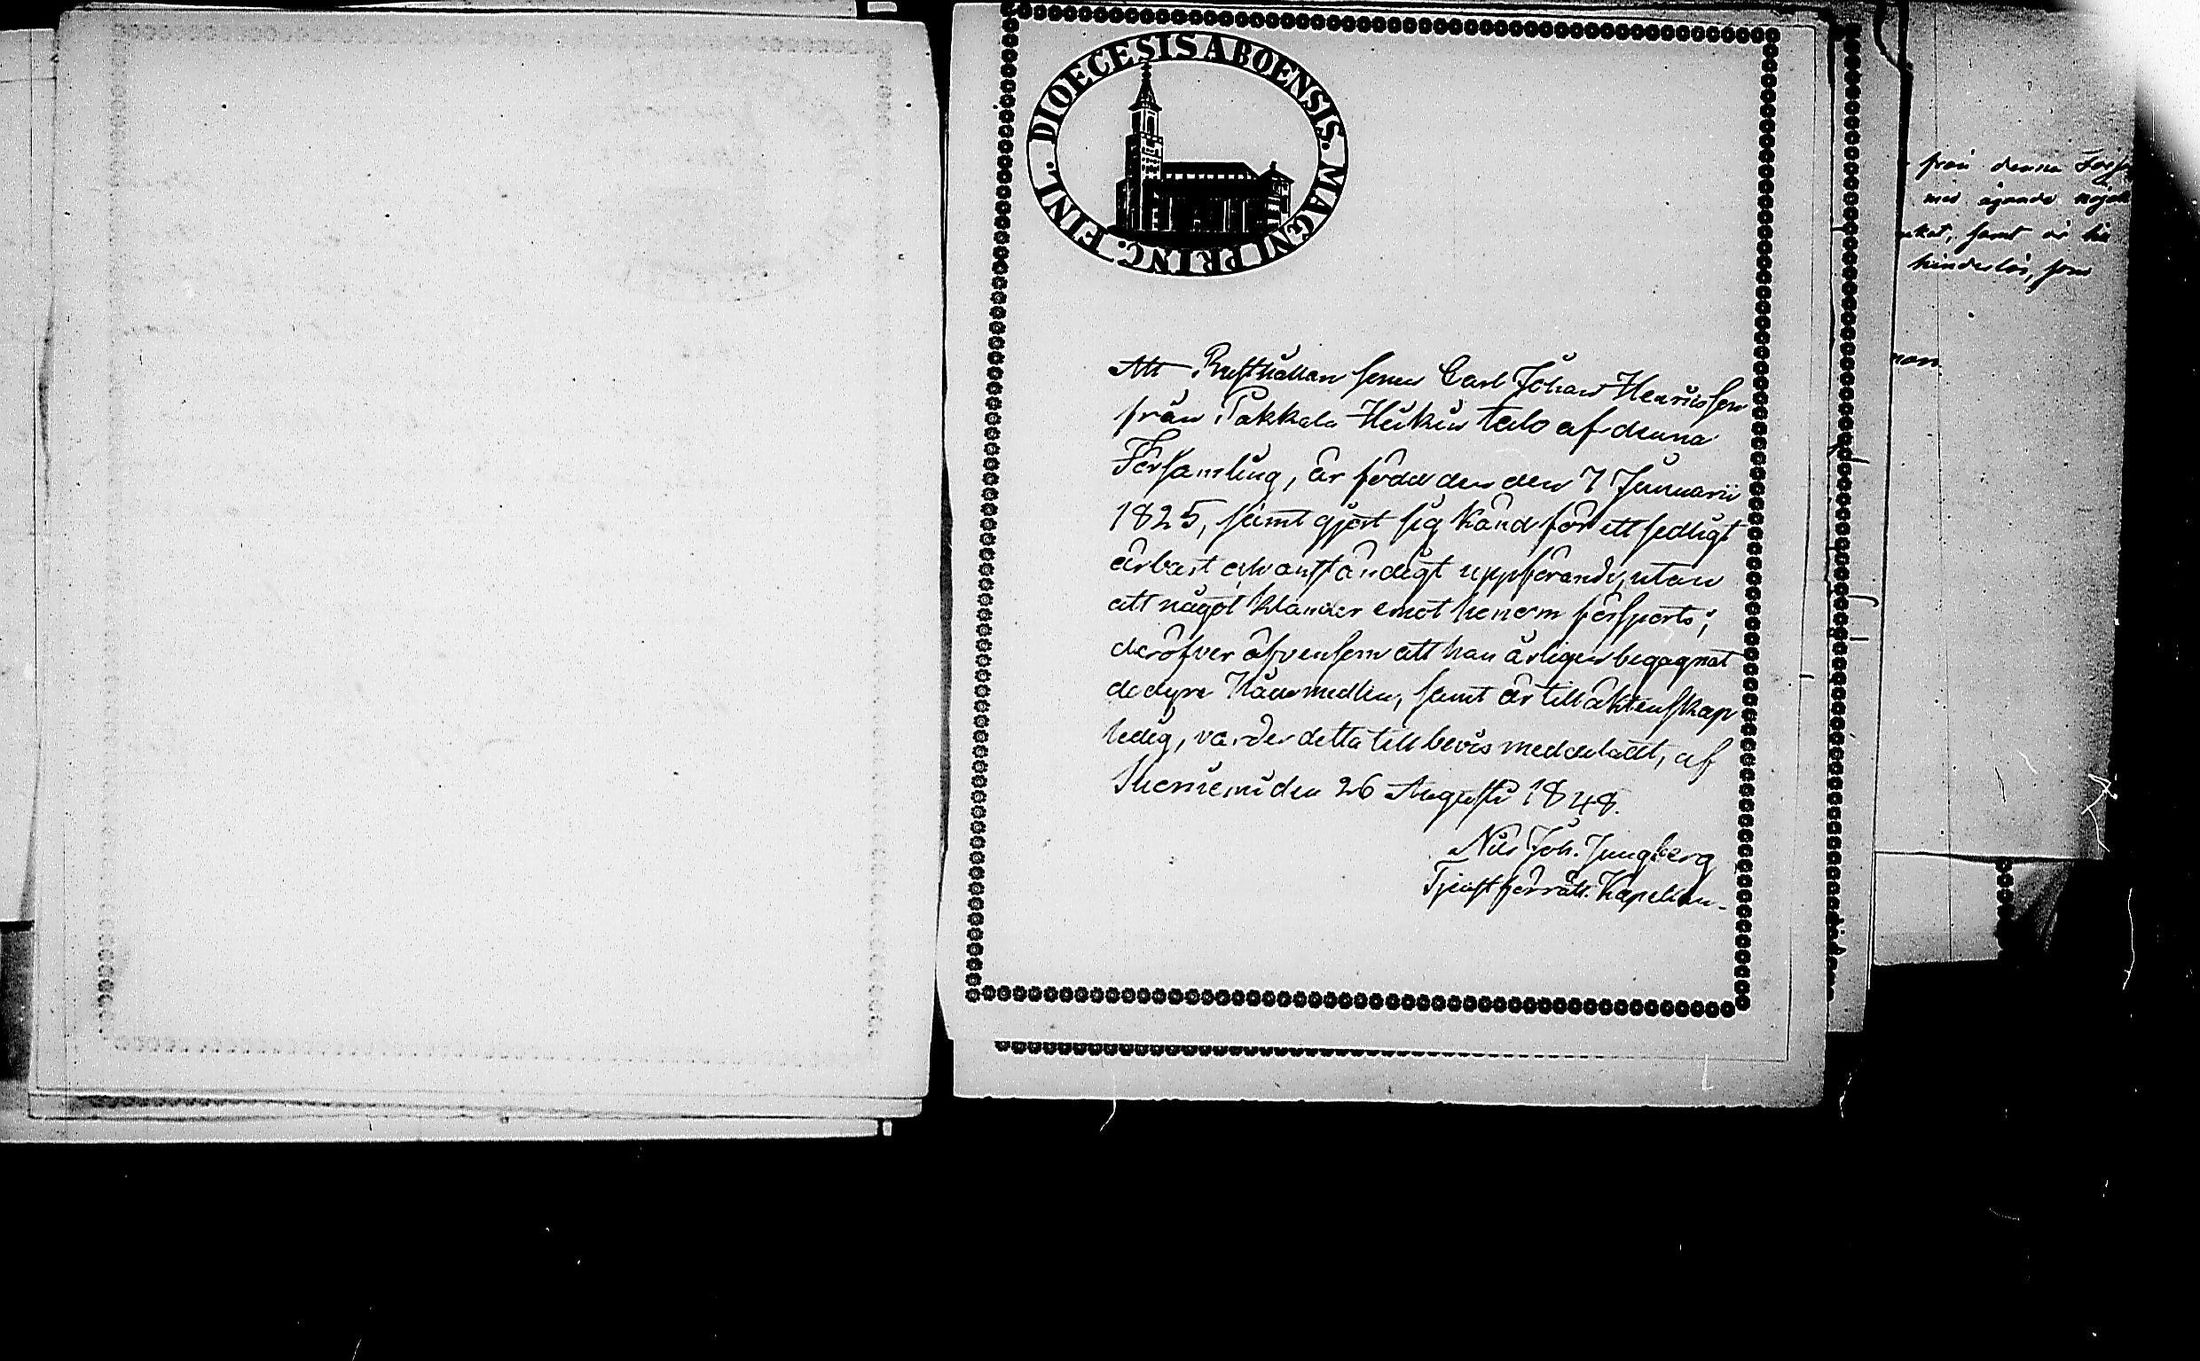 DIOECESIS ABOENSIS. MAGNI PRINC. FINL.
Att Rusthållare sonen Carl Johan Henricsson
från Pakkala Heikin talo af denna
Församling, är född den den 7 Januarii
1825, samt gjort sig känd för ett sedligt
ärbart och anständigt uppförande, utan
att något klander emot honom försports;
deröfver äfvensom att han årligen begagnat
de dyra Nådemedlen, samt är till äktenskap
ledig, varder detta till bevis meddeladt, af
den 26 Augusti 1848.
Nils Joh. Ljungberg
Tjenstförrätt. Kapellan.
från denna
med ägande
samt är
hinderlös, som